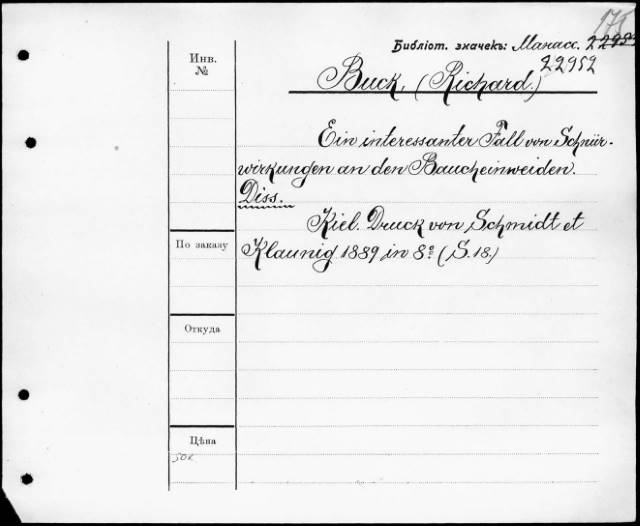 175
Библіот. значекъ: Манасс. 22953
22952
Инв.
№
Buck, (Richard.)
Ein interessanter Fall von Schnür-
wirkungen an den Baucheinweiden.
Diss.
Kiel. Druck von Schmidt et
Klaunig 1889 in 8º (S. 18.)
По заказу
Откуда
Цѣна
50к